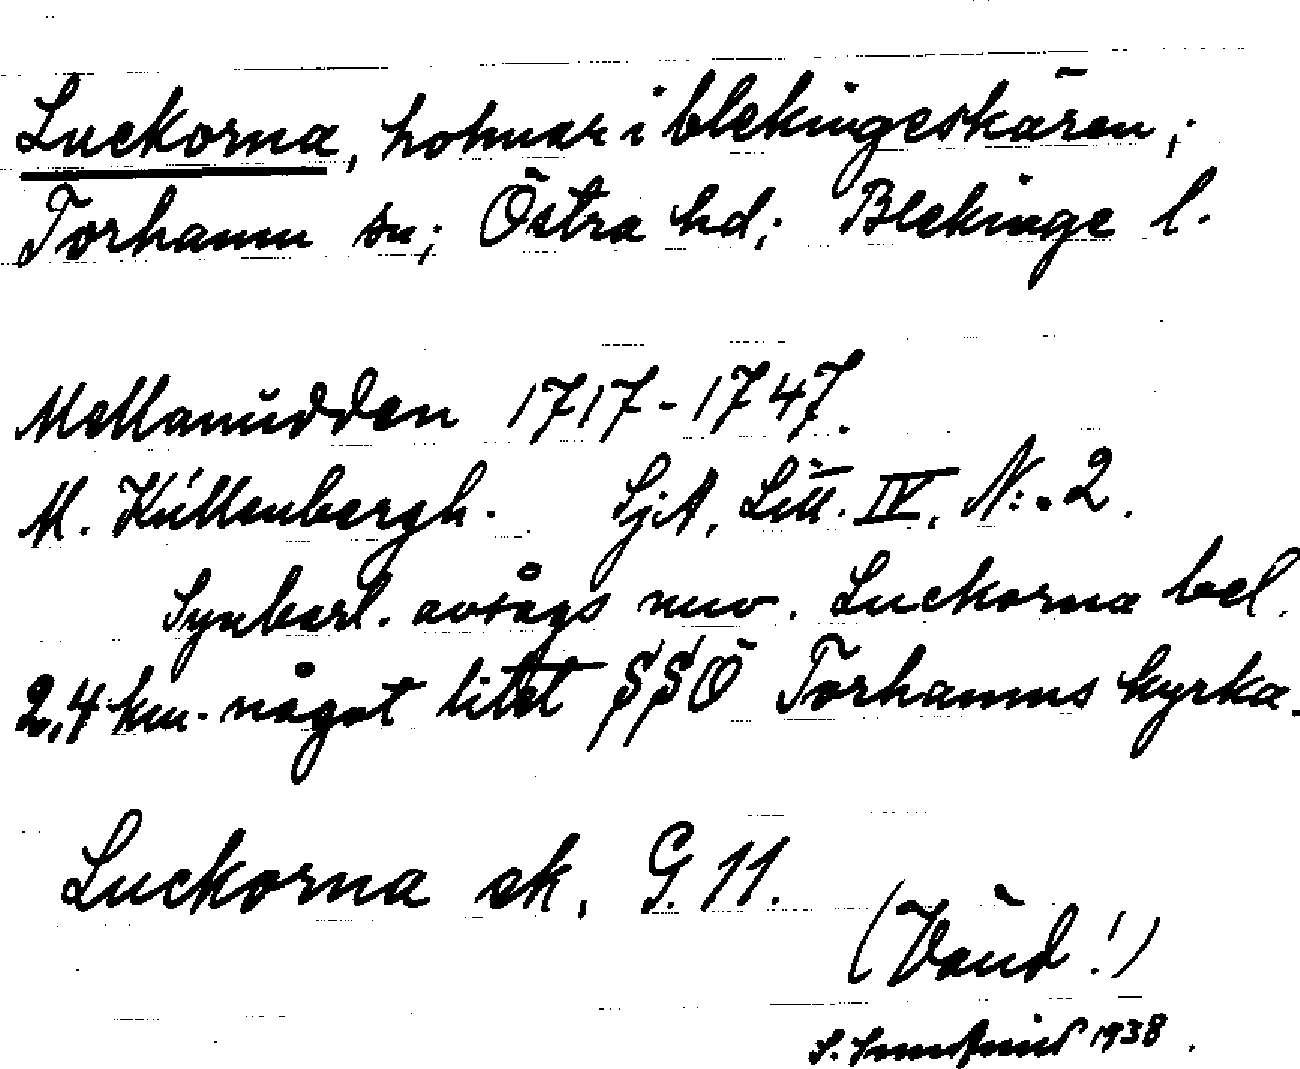 Luckorna, holmar i blekingeskären;
Torhamn sn; Östra hd; Blekinge l.
Mellanudden 1717-1747.
M. Küllenbergh. SjA, Litt. IV, N:o 2.
Synbarl. avsågs nuv. Luckorna bel.
2,4 km. något litet SSÖ Torhamns kyrka.
Luckorna ek. G. 11.
(Vänd!)
S. 1938.